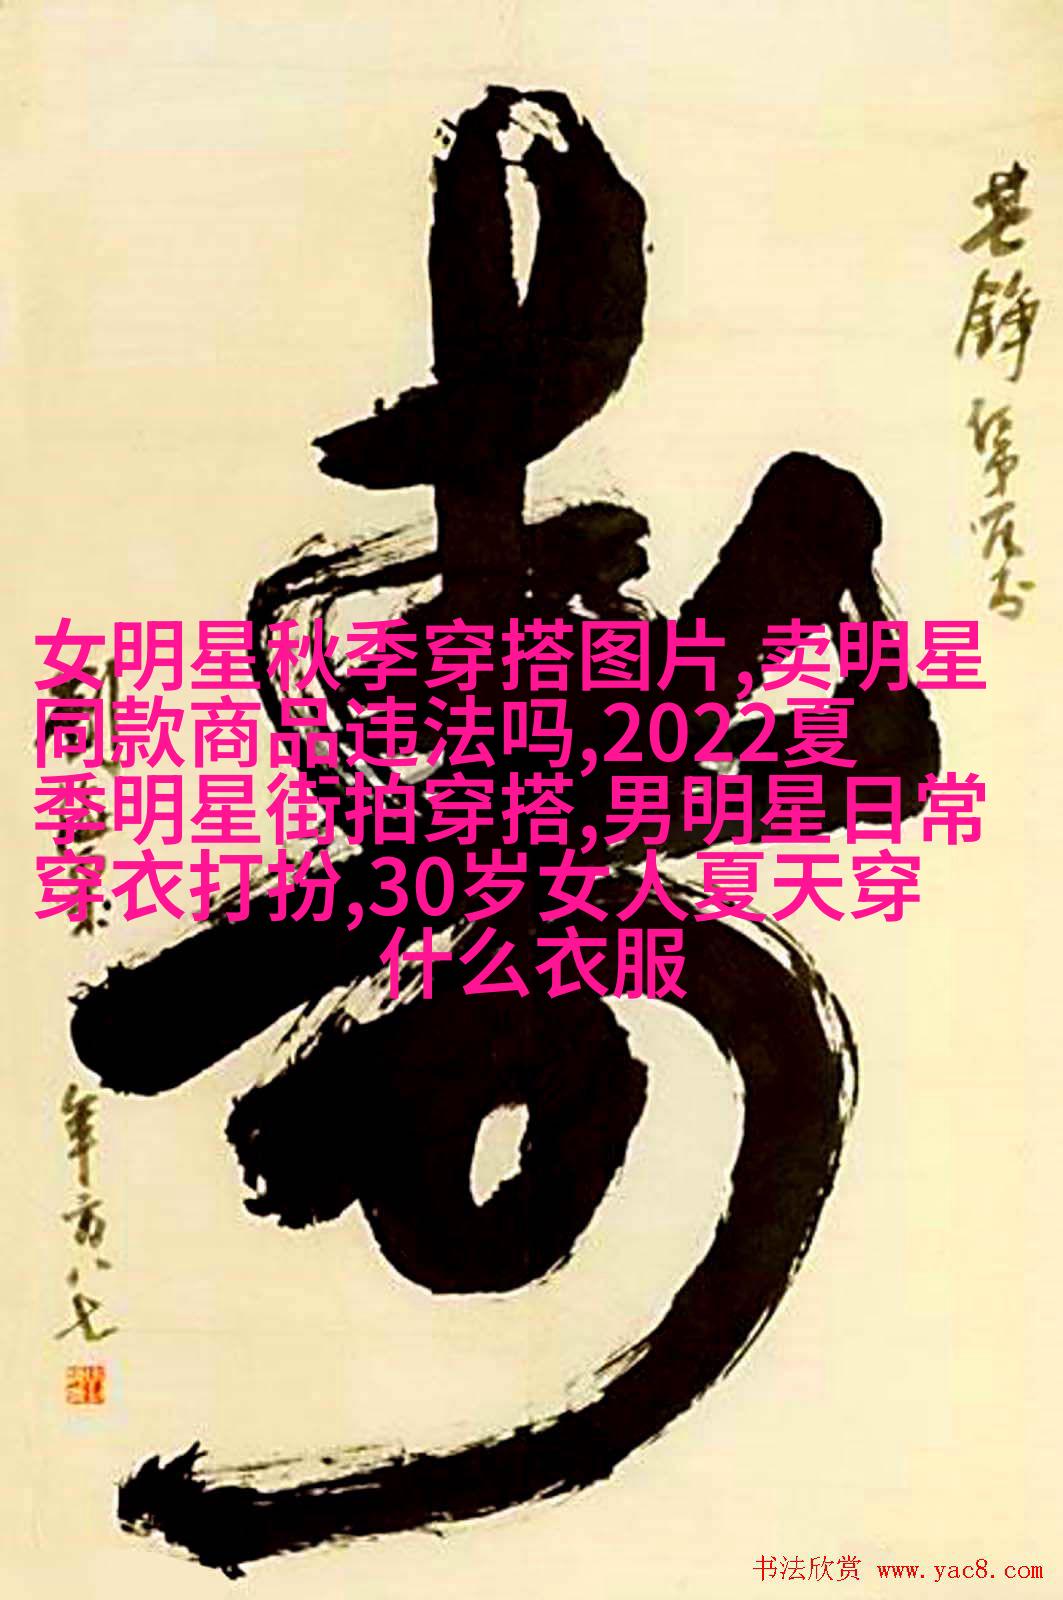 女明星秋季穿搭图片,卖明星
同款商品违法吗,2022夏
季明星街拍穿搭,男明星日常
穿衣打扮,30岁女人夏天穿
什么衣服
寿
年方八七
书法欣赏 www.yac8.com